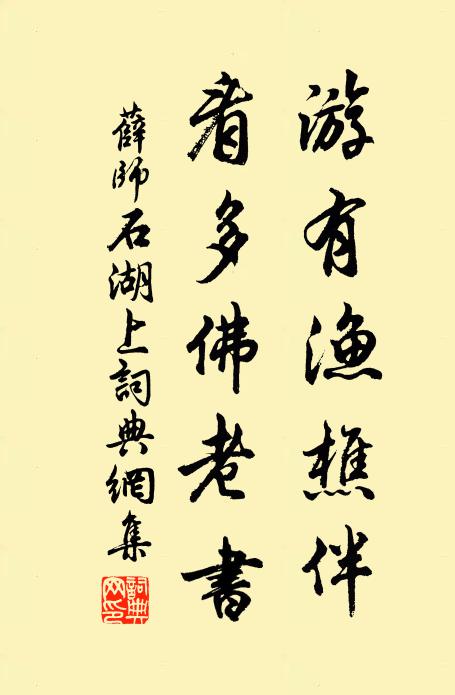 游有漁樵伴
看多佛老書
薛師石湖上詞典網集
詞典网印